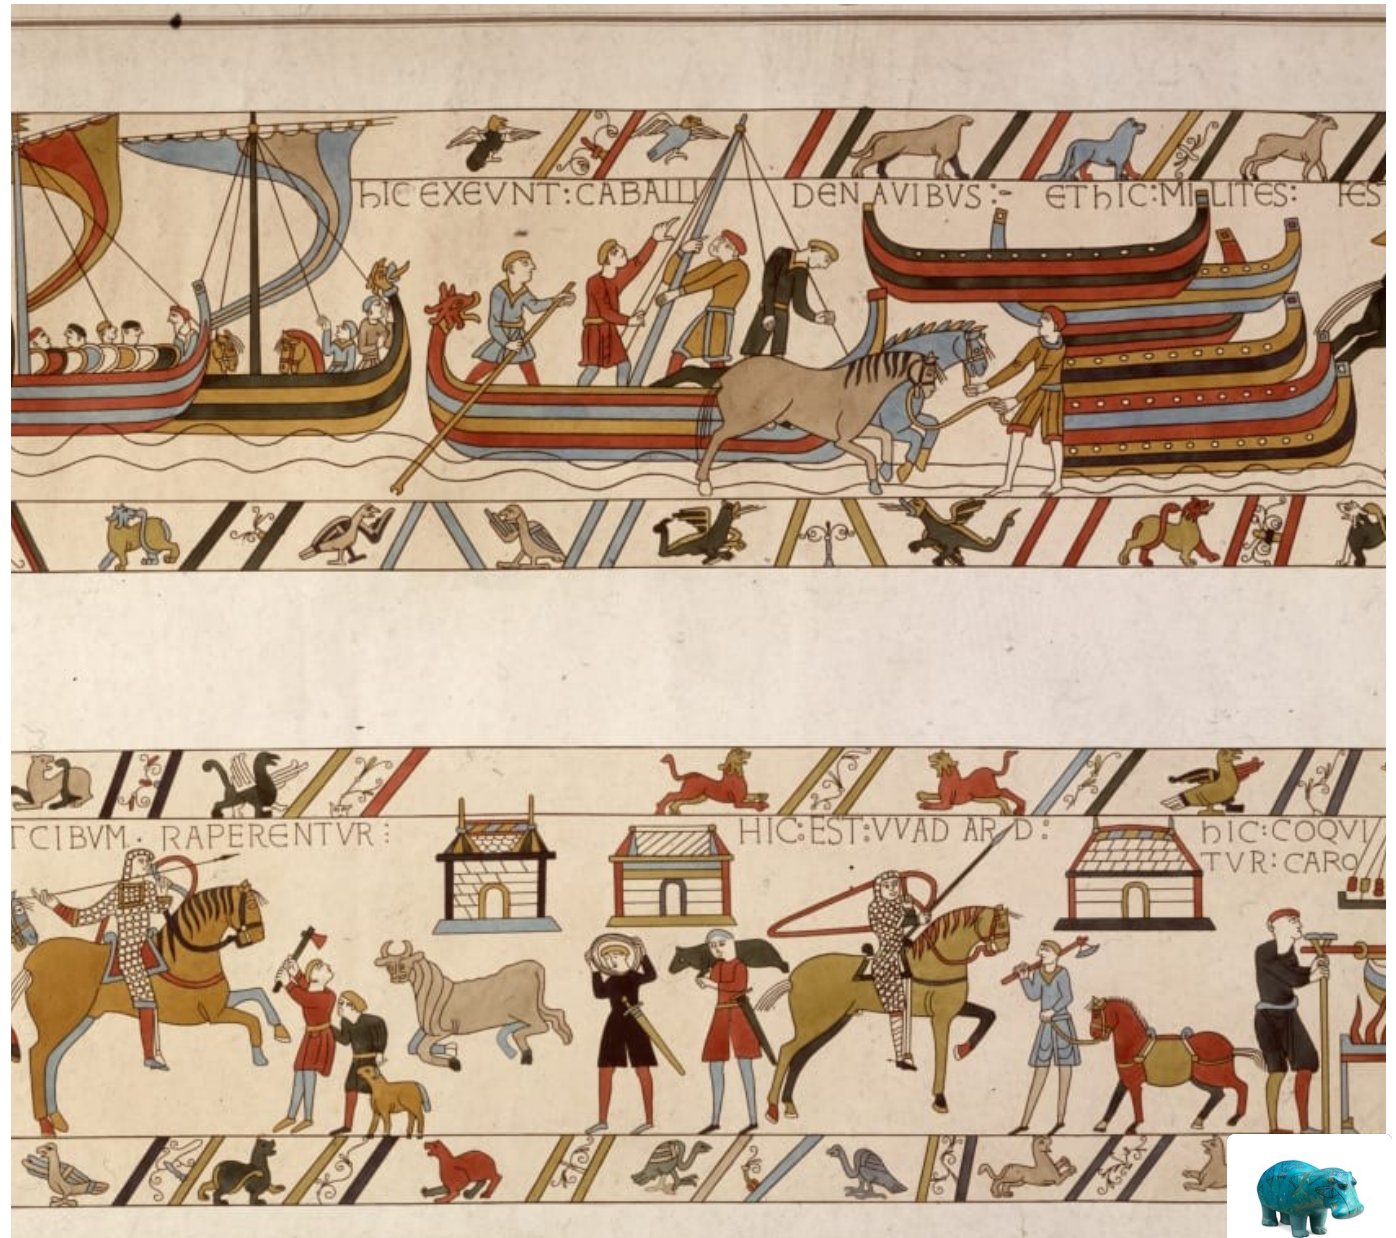 hIC EXEVNT: CABALLI DENAVIBVS:- EThIC: MILITES: FES
TCIBVM· RAPERENTVR:
HIC: EST: VVAD AR D:
hIC: COQVI
TVR: CARO